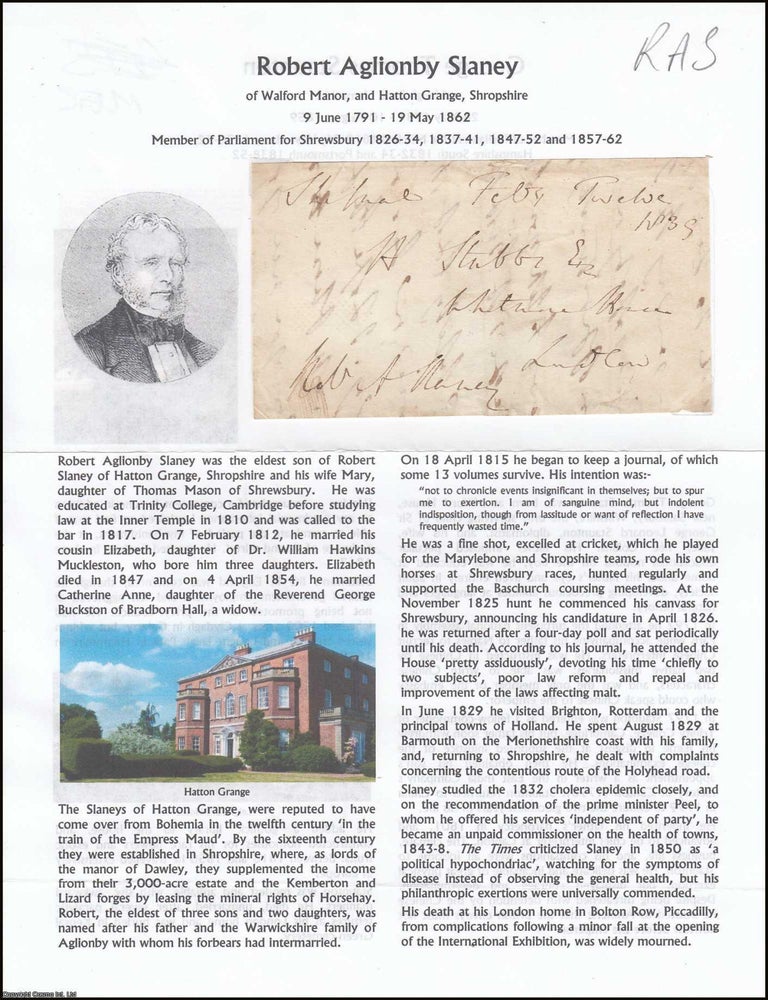 RAS
Robert Aglionby Slaney
of Walford Manor, and Hatton Grange, Shropshire
9 June 1791 - 19 May 1862
Member of Parliament for Shrewsbury 1826-34, 1837-41, 1847-52 and 1857-62
Feby Twelve
1839
H Stubbs Esq
Ludlow
Rob A Slaney
Robert Aglionby Slaney was the eldest son of Robert
Slaney of Hatton Grange, Shropshire and his wife Mary,
daughter of Thomas Mason of Shrewsbury. He was
educated at Trinity College, Cambridge before studying
law at the Inner Temple in 1810 and was called to the
bar in 1817. On 7 February 1812, he married his
cousin Elizabeth, daughter of Dr. William Hawkins
Muckleston, who bore him three daughters. Elizabeth
died in 1847 and on 4 April 1854, he married
Catherine Anne, daughter of the Reverend George
Buckston of Bradborn Hall, a widow.
Hatton Grange
The Slaneys of Hatton Grange, were reputed to have
come over from Bohemia in the twelfth century 'in the
train of the Empress Maud'. By the sixteenth century
they were established in Shropshire, where, as lords of
the manor of Dawley, they supplemented the income
from their 3,000-acre estate and the Kemberton and
Lizard forges by leasing the mineral rights of Horsehay.
Robert, the eldest of three sons and two daughters, was
named after his father and the Warwickshire family of
Aglionby with whom his forbears had intermarried.
On 18 April 1815 he began to keep a journal, of which
some 13 volumes survive. His intention was:-
"not to chronicle events insignificant in themselves; but to spur
me to exertion. I am of sanguine mind, but indolent
indisposition, though from lassitude or want of reflection I have
frequently wasted time."
He was a fine shot, excelled at cricket, which he played
for the Marylebone and Shropshire teams, rode his own
horses at Shrewsbury races, hunted regularly and
supported the Baschurch coursing meetings. At the
November 1825 hunt he commenced his canvass for
Shrewsbury, announcing his candidature in April 1826.
he was returned after a four-day poll and sat periodically
until his death. According to his journal, he attended the
House 'pretty assiduously', devoting his time 'chiefly to
two subjects', poor law reform and repeal and
improvement of the laws affecting malt.
In June 1829 he visited Brighton, Rotterdam and the
principal towns of Holland. He spent August 1829 at
Barmouth on the Merionethshire coast with his family,
and, returning to Shropshire, he dealt with complaints
concerning the contentious route of the Holyhead road.
Slaney studied the 1832 cholera epidemic closely, and
on the recommendation of the prime minister Peel, to
whom he offered his services 'independent of party', he
became an unpaid commissioner on the health of towns,
1843-8. The Times criticized Slaney in 1850 as 'a
political hypochondriac', watching for the symptoms of
disease instead of observing the general health, but his
philanthropic exertions were universally commended.
His death at his London home in Bolton Row, Piccadilly,
from complications following a minor fall at the opening
of the International Exhibition, was widely mourned.
Copyright Cosmo Int. Ltd